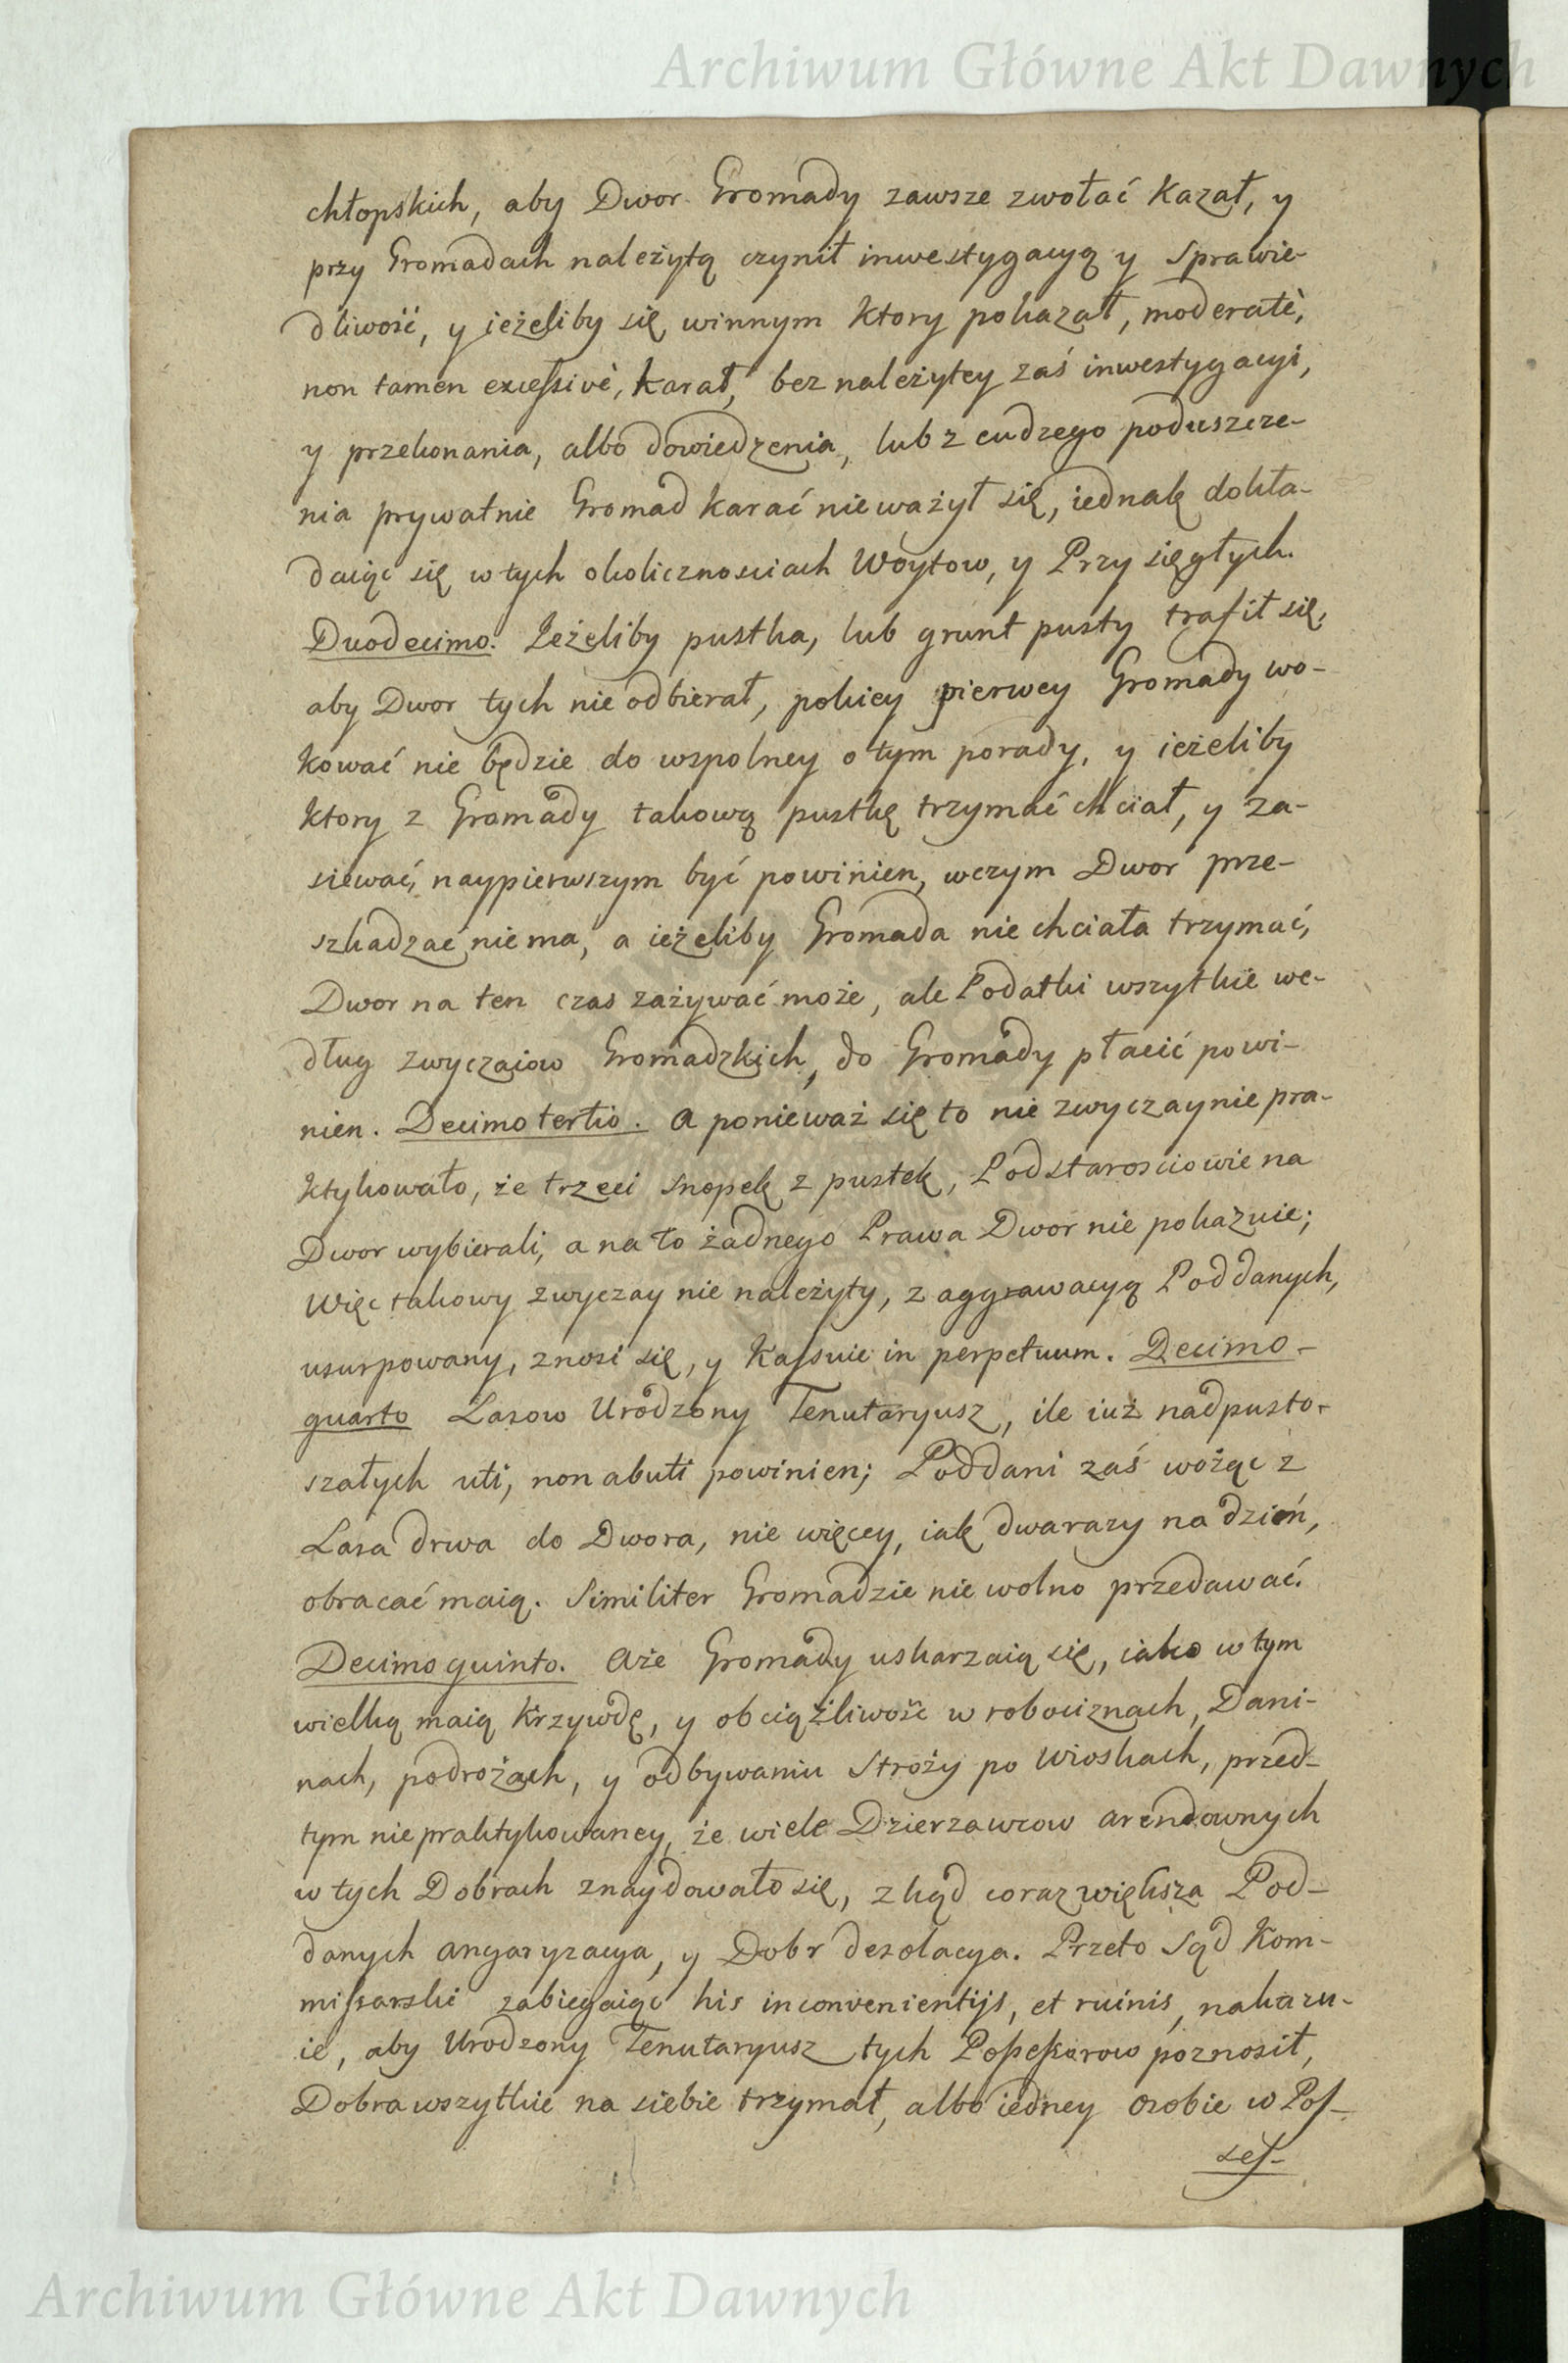 Archiwum Główne Akt Dawnych
chłopskich, aby Dwor Gromady zawsze zwołać kazał, y
przy Gromadach należytą czynił inwestygacyą y sprawie-
dliwość, y ieżeliby się winnym ktory pokazał, moderatè,
non tamen excessivè, karał, bez należytey zaś inwestygacyi,
y przekonania, albo dowiedzenia, lub z cudzego poduszcze-
nia prywatnie Gromad karać nie ważył się, iednak dokła-
daiąc się w tych okolicznosciach Woytow, y Przysięgłych.
Duodecimo. Ieżeliby pustka, lub grunt pusty trafił się,
aby Dwor tych nie odbierał, pokiey pierwey Gromady wo-
kować nie będzie do wspolney o tym porady, y ieżeliby
ktory z Gromady takową pustkę trzymać chciał, y za-
siewać, naypierwszym być powinien, w czym Dwor prze-
szkadzać nie ma, a ieżeliby Gromada nie chciała trzymać,
Dwor na ten czas zażywać może, ale Podatki wszytkie we-
dług zwyczaiow Gromadzkich, do Gromady płacić powi-
nien. Decimo tertio. A ponieważ się to nie zwyczaynie pra-
ktykowało, że trzeci snopek z pustek, Podstarosciowie na
Dwor wybierali, a na to żadnego Prawa Dwor nie pokazuie;
Więc takowy zwyczay nie należyty, z aggrawacyą Poddanych,
usurpowany, znosi się, y kassuie in perpetuum. Decimo-
quarto Lasow Urodzony Tenutaryusz, ile iuż nadpusto-
szałych uti, non abuti powinien; Poddani zaś wożąc z
Lasa drwa do Dwora, nie więcey, iak dwa razy na dzień,
obracać maią. Similiter Gromadzie nie wolno przedawać.
Decimo quinto. Aże Gromady uskarzaią się, iako w tym
wielką maią krzywdę, y obciążliwość w robociznach, Dani-
nach, podrożach, y odbywaniu Stroży po Wioskach, przed-
tym nie praktykowaney, że wiele Dzierzawcow arendownych
w tych Dobrach znaydowało się, zkąd coraz większa Pod-
danych angaryzacya, y Dobr dezolacya. Przeto Sąd Kom-
missarski zabiegaiąc his inconvenientijs, et ruinis, nakazu-
ie, aby Urodzony Tenutaryusz tych Possessorow poznosił,
Dobra wszytkie na siebie trzymał, albo iedney osobie w Pos-
ses-
Archiwum Główne Akt Dawnych